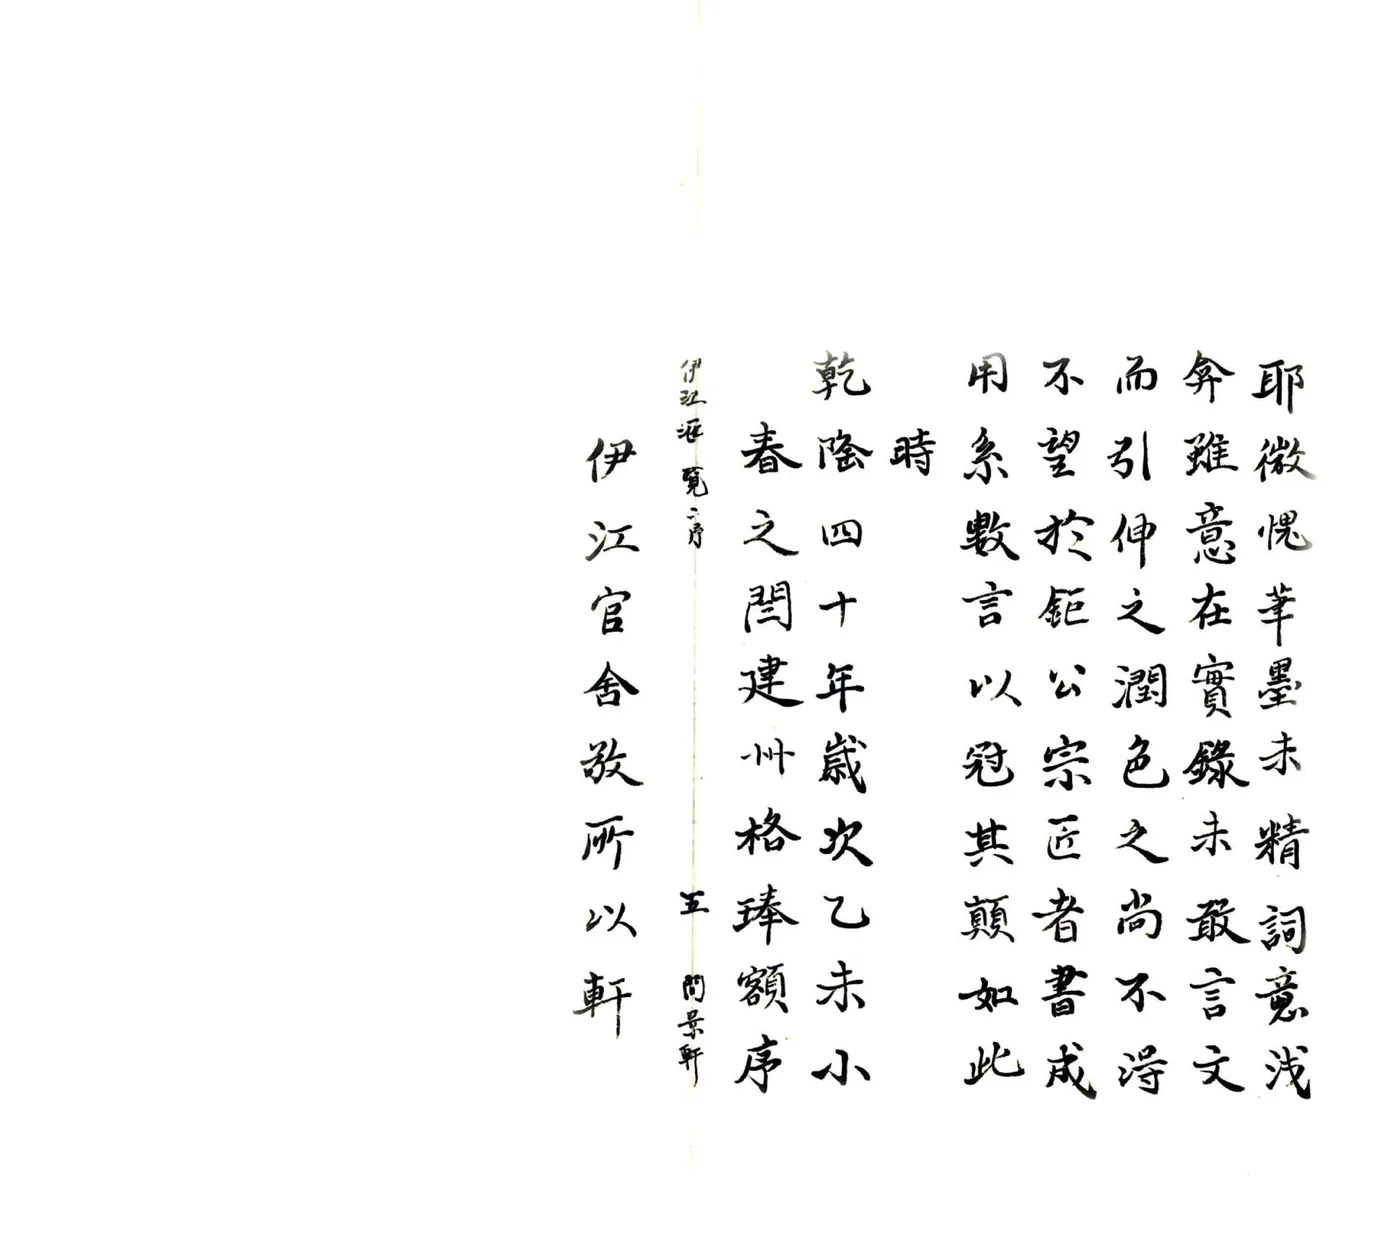 耶微愧筆墨未精詞意浅
弇雖意在實錄未敢言文
而引伸之潤色之尚不得
不望於鉅公宗匠者書成
用系數言以冠其顛如此
時
乾隆四十年歲次乙未小
春之誾建州格琫額序
伊江滙覽 序 五 問景軒
伊江官舍敬所以軒